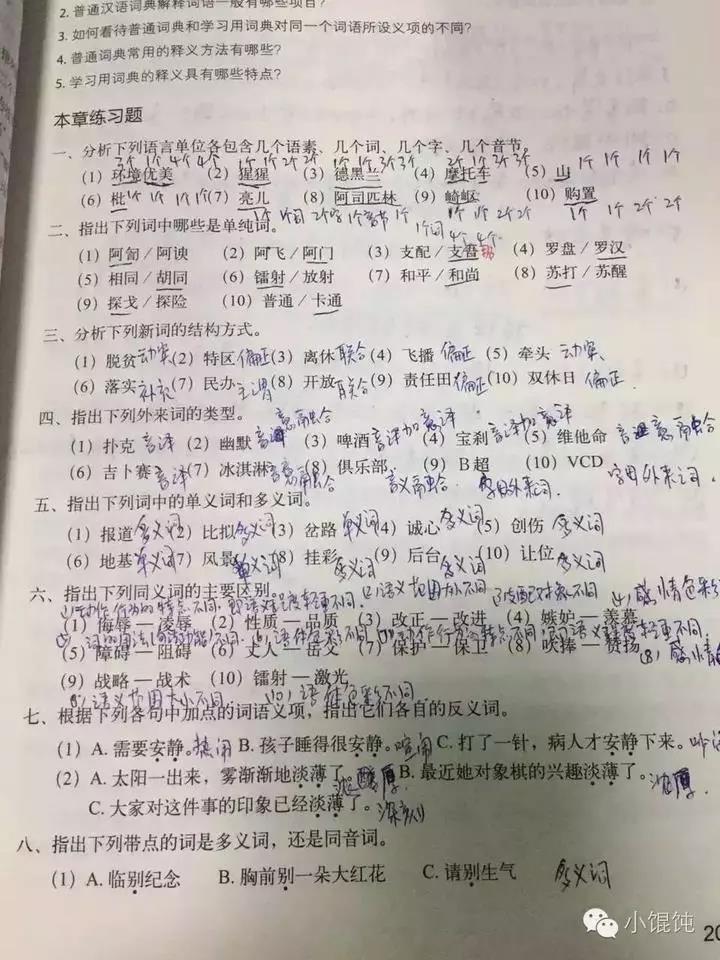 2. 普通汉语词典解释词语一般有哪些项目?
3. 如何看待普通词典和学习用词典对同一个词语所设义项的不同?
4. 普通词典常用的释义方法有哪些?
5. 学习用词典的释义具有哪些特点?
本章练习题
一、分析下列语言单位各包含几个语素、几个词、几个字、几个音节。
3个 1个 4个 4个 1个 1个 2个 2个 1个 1个 3个 3个 2个 1个 3个 3个 1个 1个 1个 1个
(1) 环境优美 (2) 猩猩 (3) 德黑兰 (4) 摩托车 (5) 山
(6) 枇 (7) 亮儿 (8) 阿司匹林 (9) 崎岖 (10) 购置
二、指出下列词中哪些是单纯词。
(1) 阿訇 / 阿谀 (2) 阿飞 / 阿门 (3) 支配 / 支吾 (4) 罗盘 / 罗汉
(5) 相同 / 胡同 (6) 镭射 / 放射 (7) 和平 / 和尚 (8) 苏打 / 苏醒
(9) 探戈 / 探险 (10) 普通 / 卡通
三、分析下列新词的结构方式。
(1) 脱贫 动宾 (2) 特区 偏正 (3) 离休 联合 (4) 飞播 偏正 (5) 牵头 动宾
(6) 落实 补充 (7) 民办 主谓 (8) 开放 联合 (9) 责任田 偏正 (10) 双休日 偏正
四、指出下列外来词的类型。
(1) 扑克 音译 (2) 幽默 音意融合 (3) 啤酒 音译加意译 (4) 宝刹 音译加意译 (5) 维他命 音意融合
(6) 吉卜赛 音译 (7) 冰淇淋 音意融合 (8) 俱乐部 音义融合 (9) B超 字母外来词 (10) VCD 字母外来词
五、指出下列词中的单义词和多义词。
(1) 报道 多义词 (2) 比拟 多义词 (3) 岔路 单义词 (4) 诚心 多义词 (5) 创伤 多义词
(6) 地基 单义词 (7) 风景 单义词 (8) 挂彩 多义词 (9) 后台 多义词 (10) 让位 多义词
六、指出下列同义词的主要区别。
(1) 侮辱 — 凌辱 (2) 性质 — 品质 (3) 改正 — 改进 (4) 嫉妒 — 羡慕
(5) 障碍 — 阻碍 (6) 丈人 — 岳父 (7) 保护 — 保卫 (8) 吹捧 — 赞扬
(9) 战略 — 战术 (10) 镭射 — 激光
(9) 语义范围大小不同 (10) 语体色彩不同
七、根据下列各句中加点的词语义项，指出它们各自的反义词。
(1) A. 需要安静。热闹 B. 孩子睡得很安静。喧闹 C. 打了一针，病人才安静下来。
(2) A. 太阳一出来，雾渐渐地淡薄了。 B. 最近她对象棋的兴趣淡薄了。浓厚
C. 大家对这件事的印象已经淡薄了。深刻
八、指出下列带点的词是多义词，还是同音词。
(1) A. 临别纪念 B. 胸前别一朵大红花 C. 请别生气 多义词
小馄饨
20